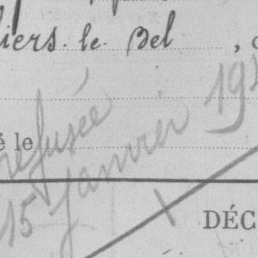 liers. le. Bel,
é le
refusée
15 janvier 19
DÉC